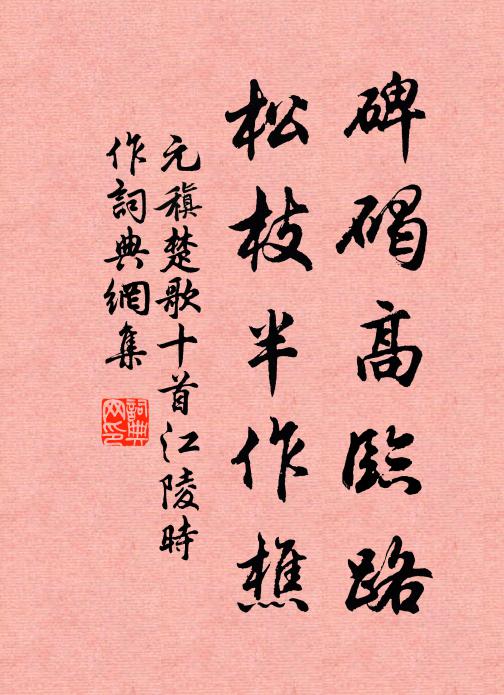 碑碣高臨路
松枝半作樵
元稹楚歌十首江陵時
作詞典網集
詞典
网印